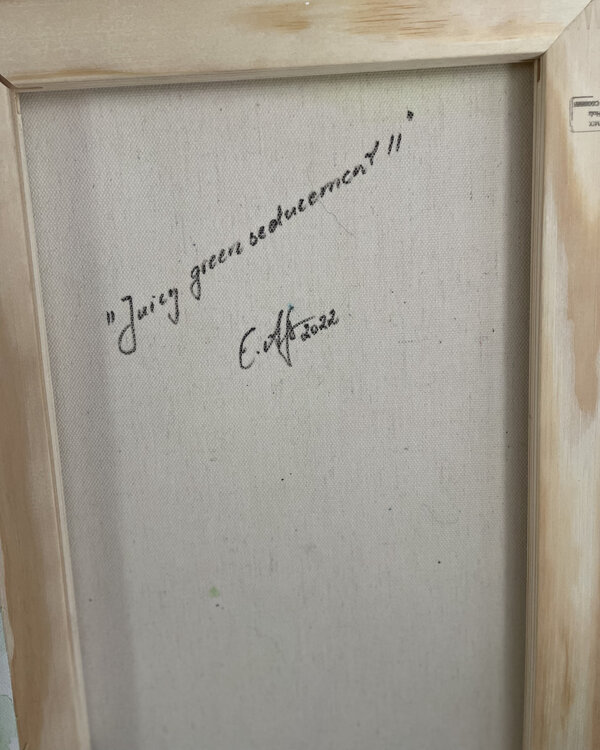 "Juicy green seducement II"
2022